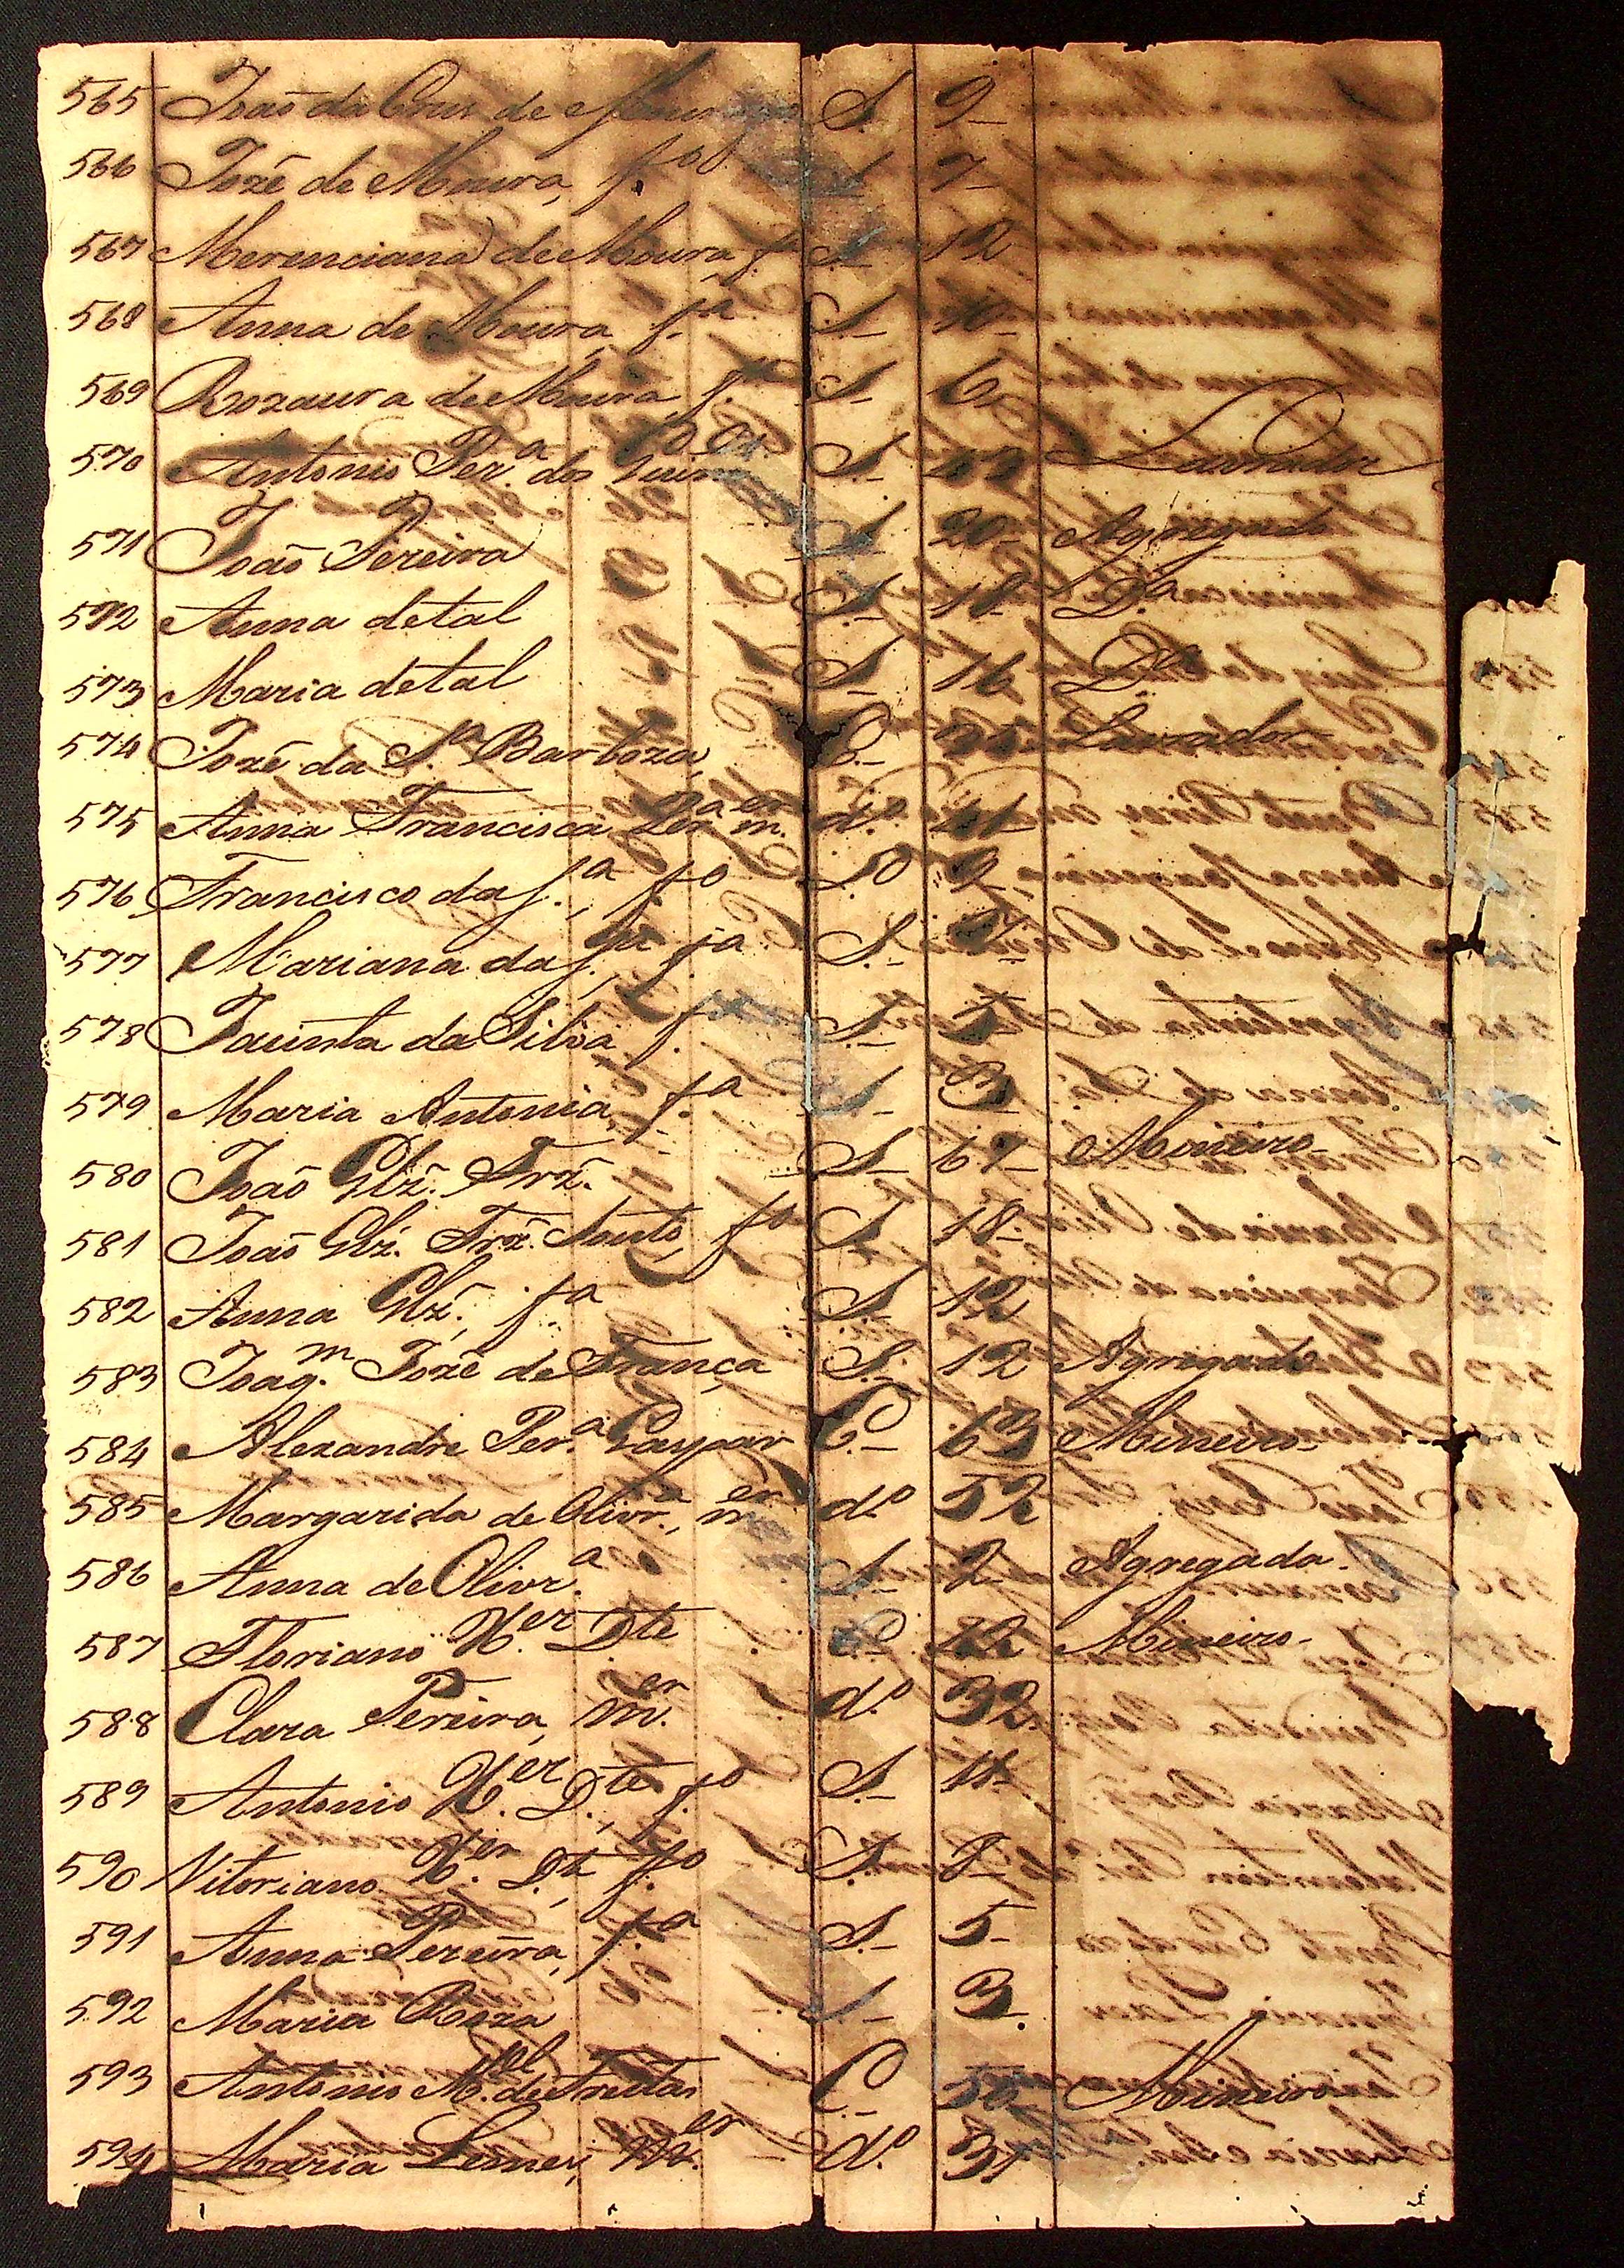 565 João da Crus de S. 9
566 Jozé de Moura, f.º 7
567 Merenciana de Moura f. S. 12
568 Anna de Moura, f.ª S. 10
569 Rozaura de Moura, f. S. 6
570 Antonio Per.ª dos S. Lavrador
571 João Pereira S. 20 Agregado
572 Anna de tal S. 18 D.ª
573 Maria de tal S. 16 D.ª
574 Jozé da S.ª Barboza C. Lavrador
575 Anna Francisca Per.ª m.er d.º
576 Francisco da S.ª, f.º S. 9
577 Mariana da S.ª f.ª S.
578 Jacinta da Silva f. S.
579 Maria Antonia, f.ª S. 3
580 João Glz̃. Frz̃. S. 67 Mineiro
581 João Glz̃. Frz̃. Souto, f.º S. 18
582 Anna Glz̃., f.ª S. 12
583 Joaq.m Jozé de França S. 12 Agregado
584 Alexandre Per.ª Gaspar C. 63 Mineiro
585 Margarida de Olivr.ª, m.er d.º 52
586 Anna de Olivr.ª S. 2 Agregada
587 Floriano X.er D.te C. Mineiro
588 Clara Pereira, m.er d.º 32
589 Antonio X.er D.te, f.º S. 11
590 Vitoriano X.er D.te, f.º S. 8
591 Anna Pereira, f.ª S. 5
592 Maria Roza S. 3
593 Antonio M.el de Freitas C. 50 Mineiro
594 Maria Lemes, M.er d.º 37